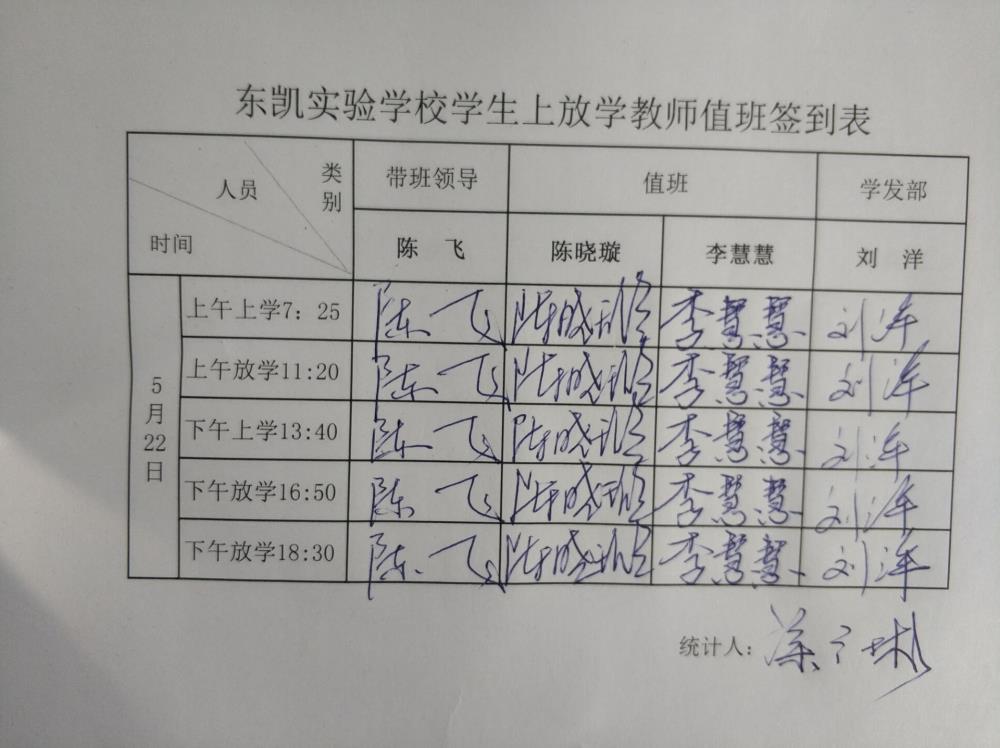 东凯实验学校学生上放学教师值班签到表
人员 类别 带班领导 值班 学发部
时间 陈 飞 陈晓璇 李慧慧 刘 洋
5月22日
上午上学7：25 陈飞 陈晓璇 李慧慧 刘洋
上午放学11:20 陈飞 陈晓璇 李慧慧 刘洋
下午上学13:40 陈飞 陈晓璇 李慧慧 刘洋
下午放学16:50 陈飞 陈晓璇 李慧慧 刘洋
下午放学18:30 陈飞 陈晓璇 李慧慧 刘洋
统计人：